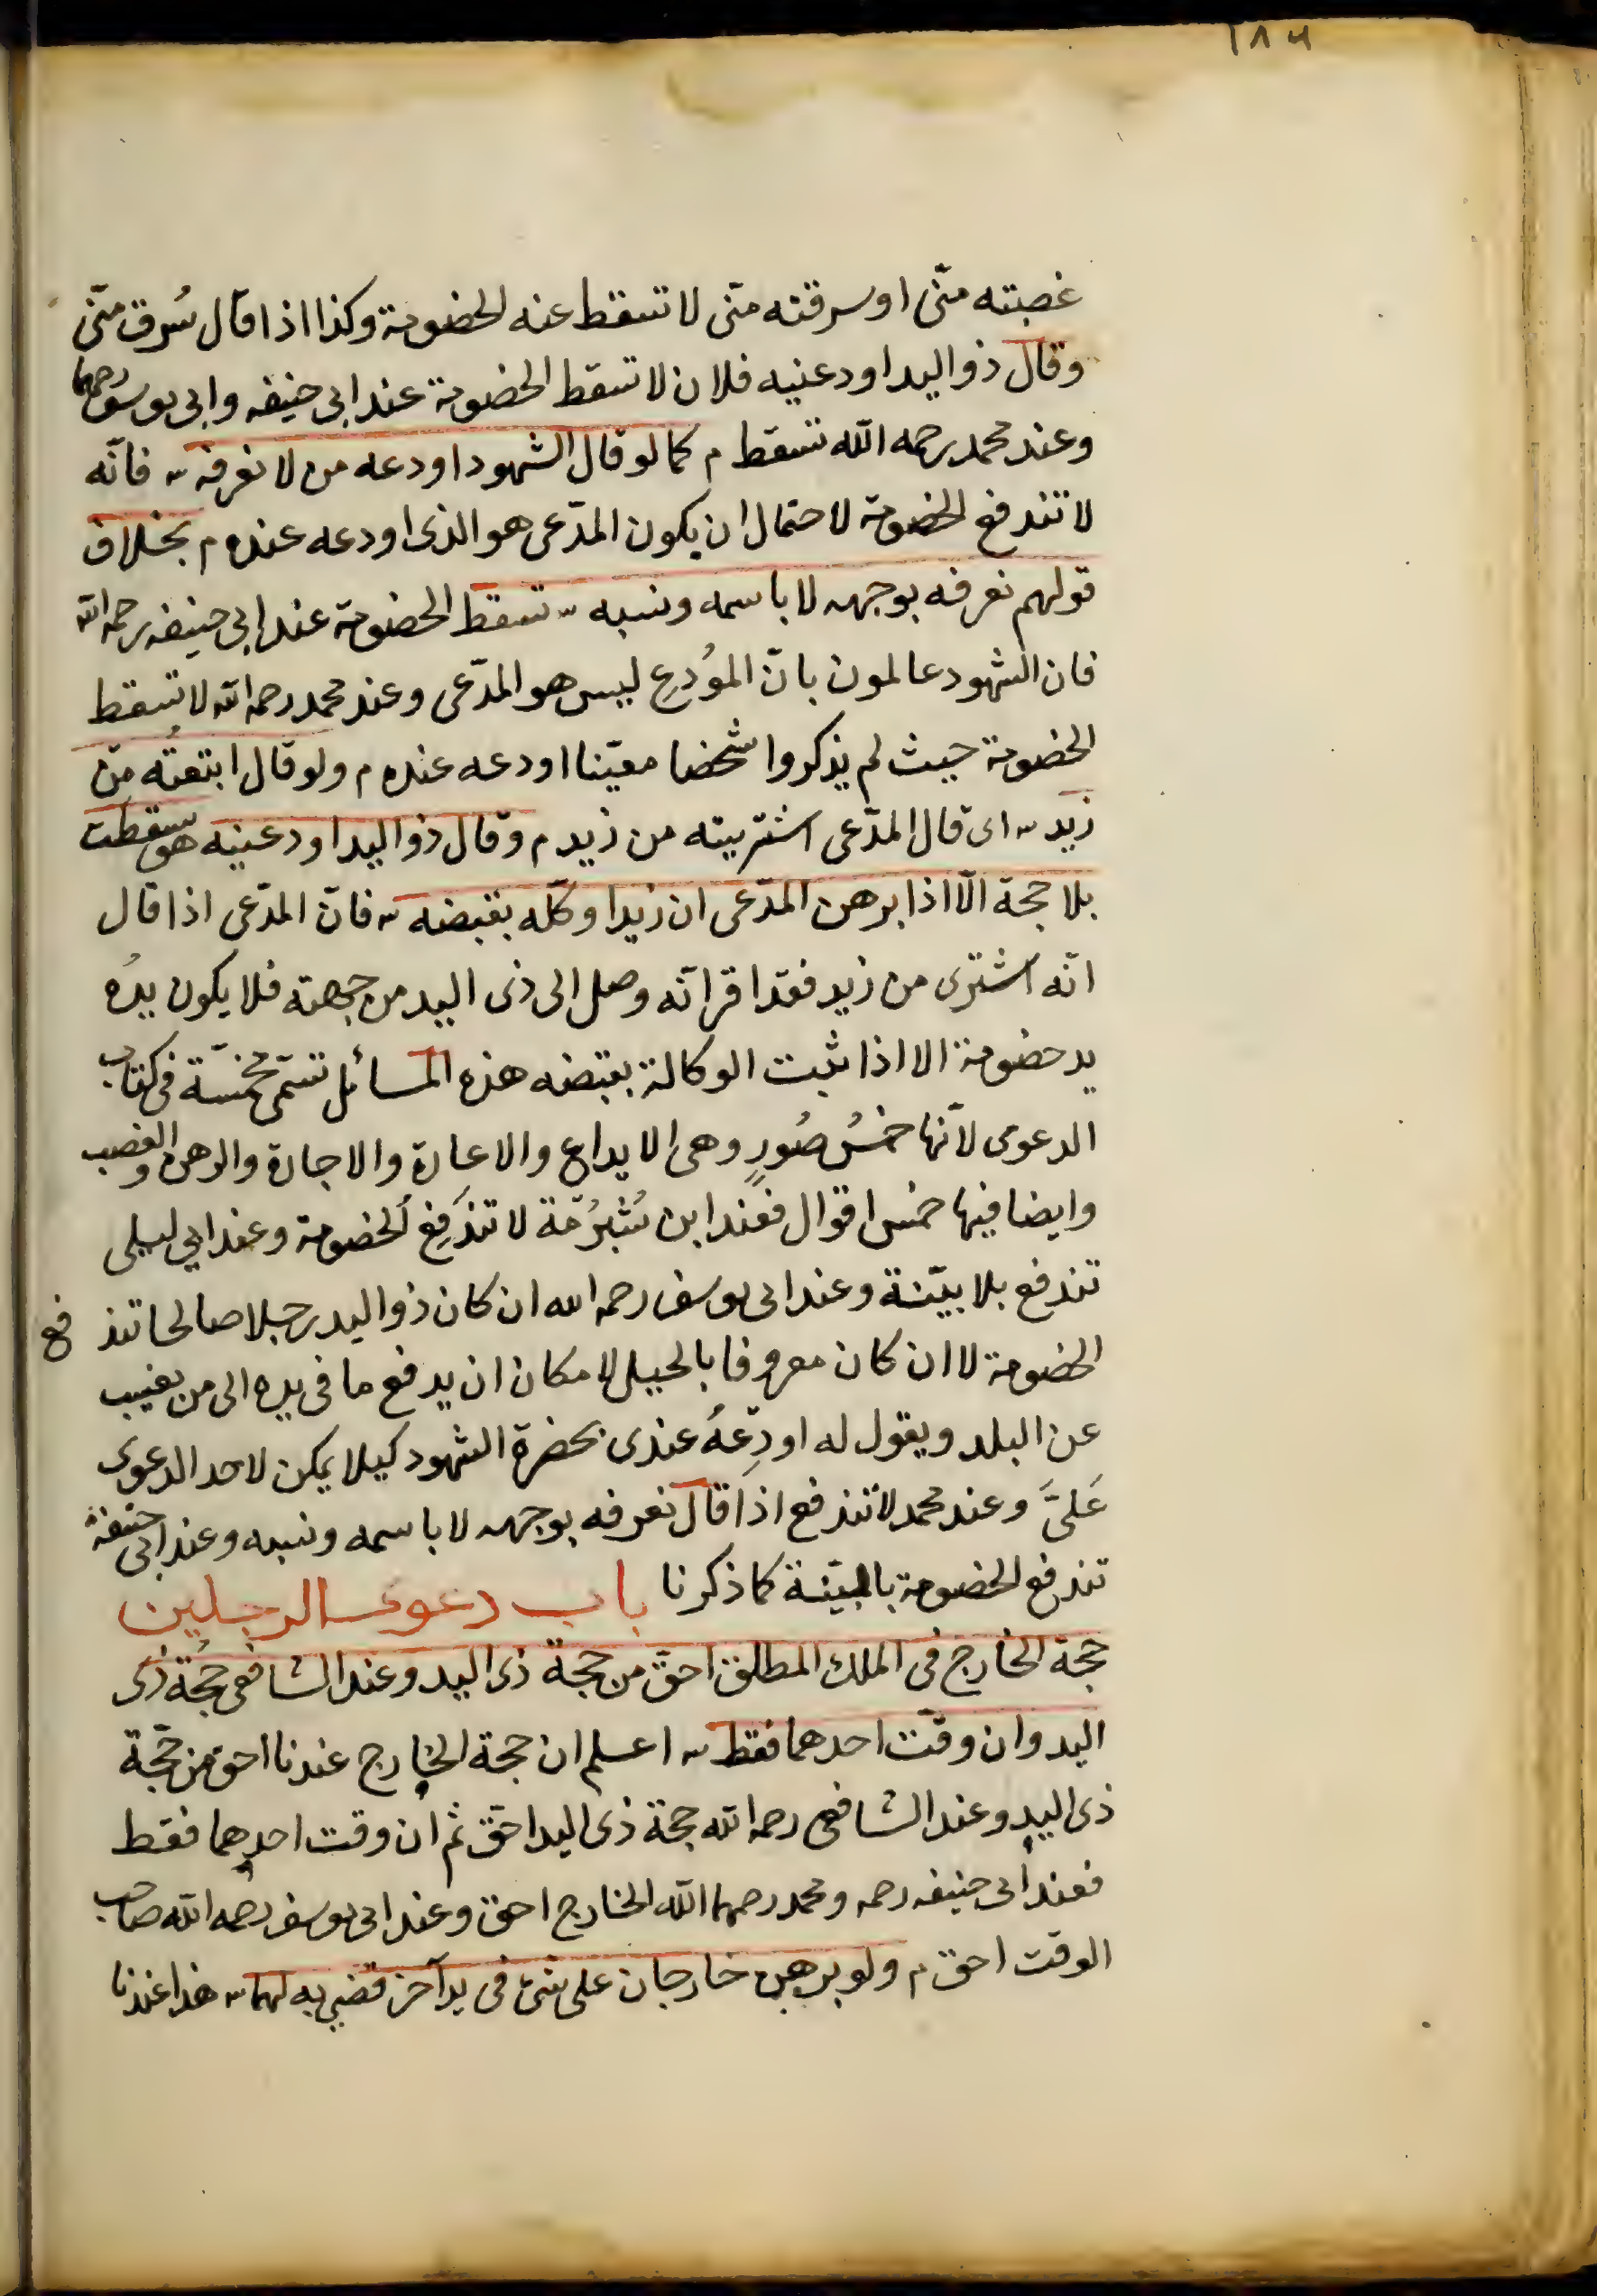 ١٨٦
غصبته منّى او سرقته منّى لا تسقط عنه الخصومة وكذا اذا قال سُرق منّى
وقال ذو اليد اودعنيه فلان لا تسقط الخصومة عند ابى حنيفه وابى يوسف رحمهما
وعند محمد رحمه الله تسقط م كما لو قال الشهود اودعه من لا نعرفه س فانّه
لا تندفع الخصومة لاحتمال ان يكون المدّعى هو الذى اودعه عنده م بخلاف
قولهم نعرفه بوجهه لا باسمه ونسبه س تسقط الخصومة عند ابى حنيفه رحمه الله
فان الشهود عالمون بانّ المُودِع ليس هو المدّعى وعند محمد رحمه الله لا تسقط
الخصومة حيث لم يذكروا شخصا معيّنا اودعه عنده م ولو قال ابتعتُه من
زيد س اى قال المدّعى اشتريته من زيد م وقال ذو اليد اودعنيه هو سقطت
بلا حجة الّا اذا برهن المدّعى ان زيدا وكّله بقبضه س فانّ المدّعى اذا قال
انّه اشترى من زيد فقد اقر انّه وصل الى ذى اليد من جهته فلا يكون يدُه
يد خصومة الا اذا يثبت الوكالة بقبضه هذه المسائل تسمّى مخمّسة فى كتاب
الدعوى لانّها خمسُ صُورٍ وهى الايداع والاعارة والاجارة والرهن والغصب
وايضا فيها خمس اقوال فعند ابن شُبْرُمَة لا تندَفِع الخصومة وعند ابى ليلى
تندفع بلا بيّنة وعند ابى يوسف رحمه الله ان كان ذو اليد رجلا صالحا تند فع
الخصومة لا ان كان معروفا بالحيل لامكان ان يدفع ما فى يده الى من يغيب
عن البلد ويقول له اودِعهُ عندى بحضرة الشهود كيلا يمكن لاحد الدعوى
عَلىَّ وعند محمد لا تندفع اذا قال نعرفه بوجهه لا باسمه ونسبه وعند ابى حنيفة
تندفع الخصومة بالبيّنة كما ذكرنا باب دعوى الرجلين
حجة الخارج فى الملك المطلق احقّ من حجة ذى اليد وعند الشافعى حجُة ذى
اليد وان وقّت احدهما فقط س اعلم ان حجة الخارج عندنا احق من حجّة
ذى اليد وعند الشافعى رحمه الله حجة ذى اليد احقّ ثم ان وقت احدهما فقط
فعند ابى حنيفه رحمه ومحمد رحمهما الله الخارج احق وعند ابى يوسف رحمه الله صاحب
الوقت احق م ولو برهن خارجان على شئ فى يد آخر قضى به لهما س هذا عندنا